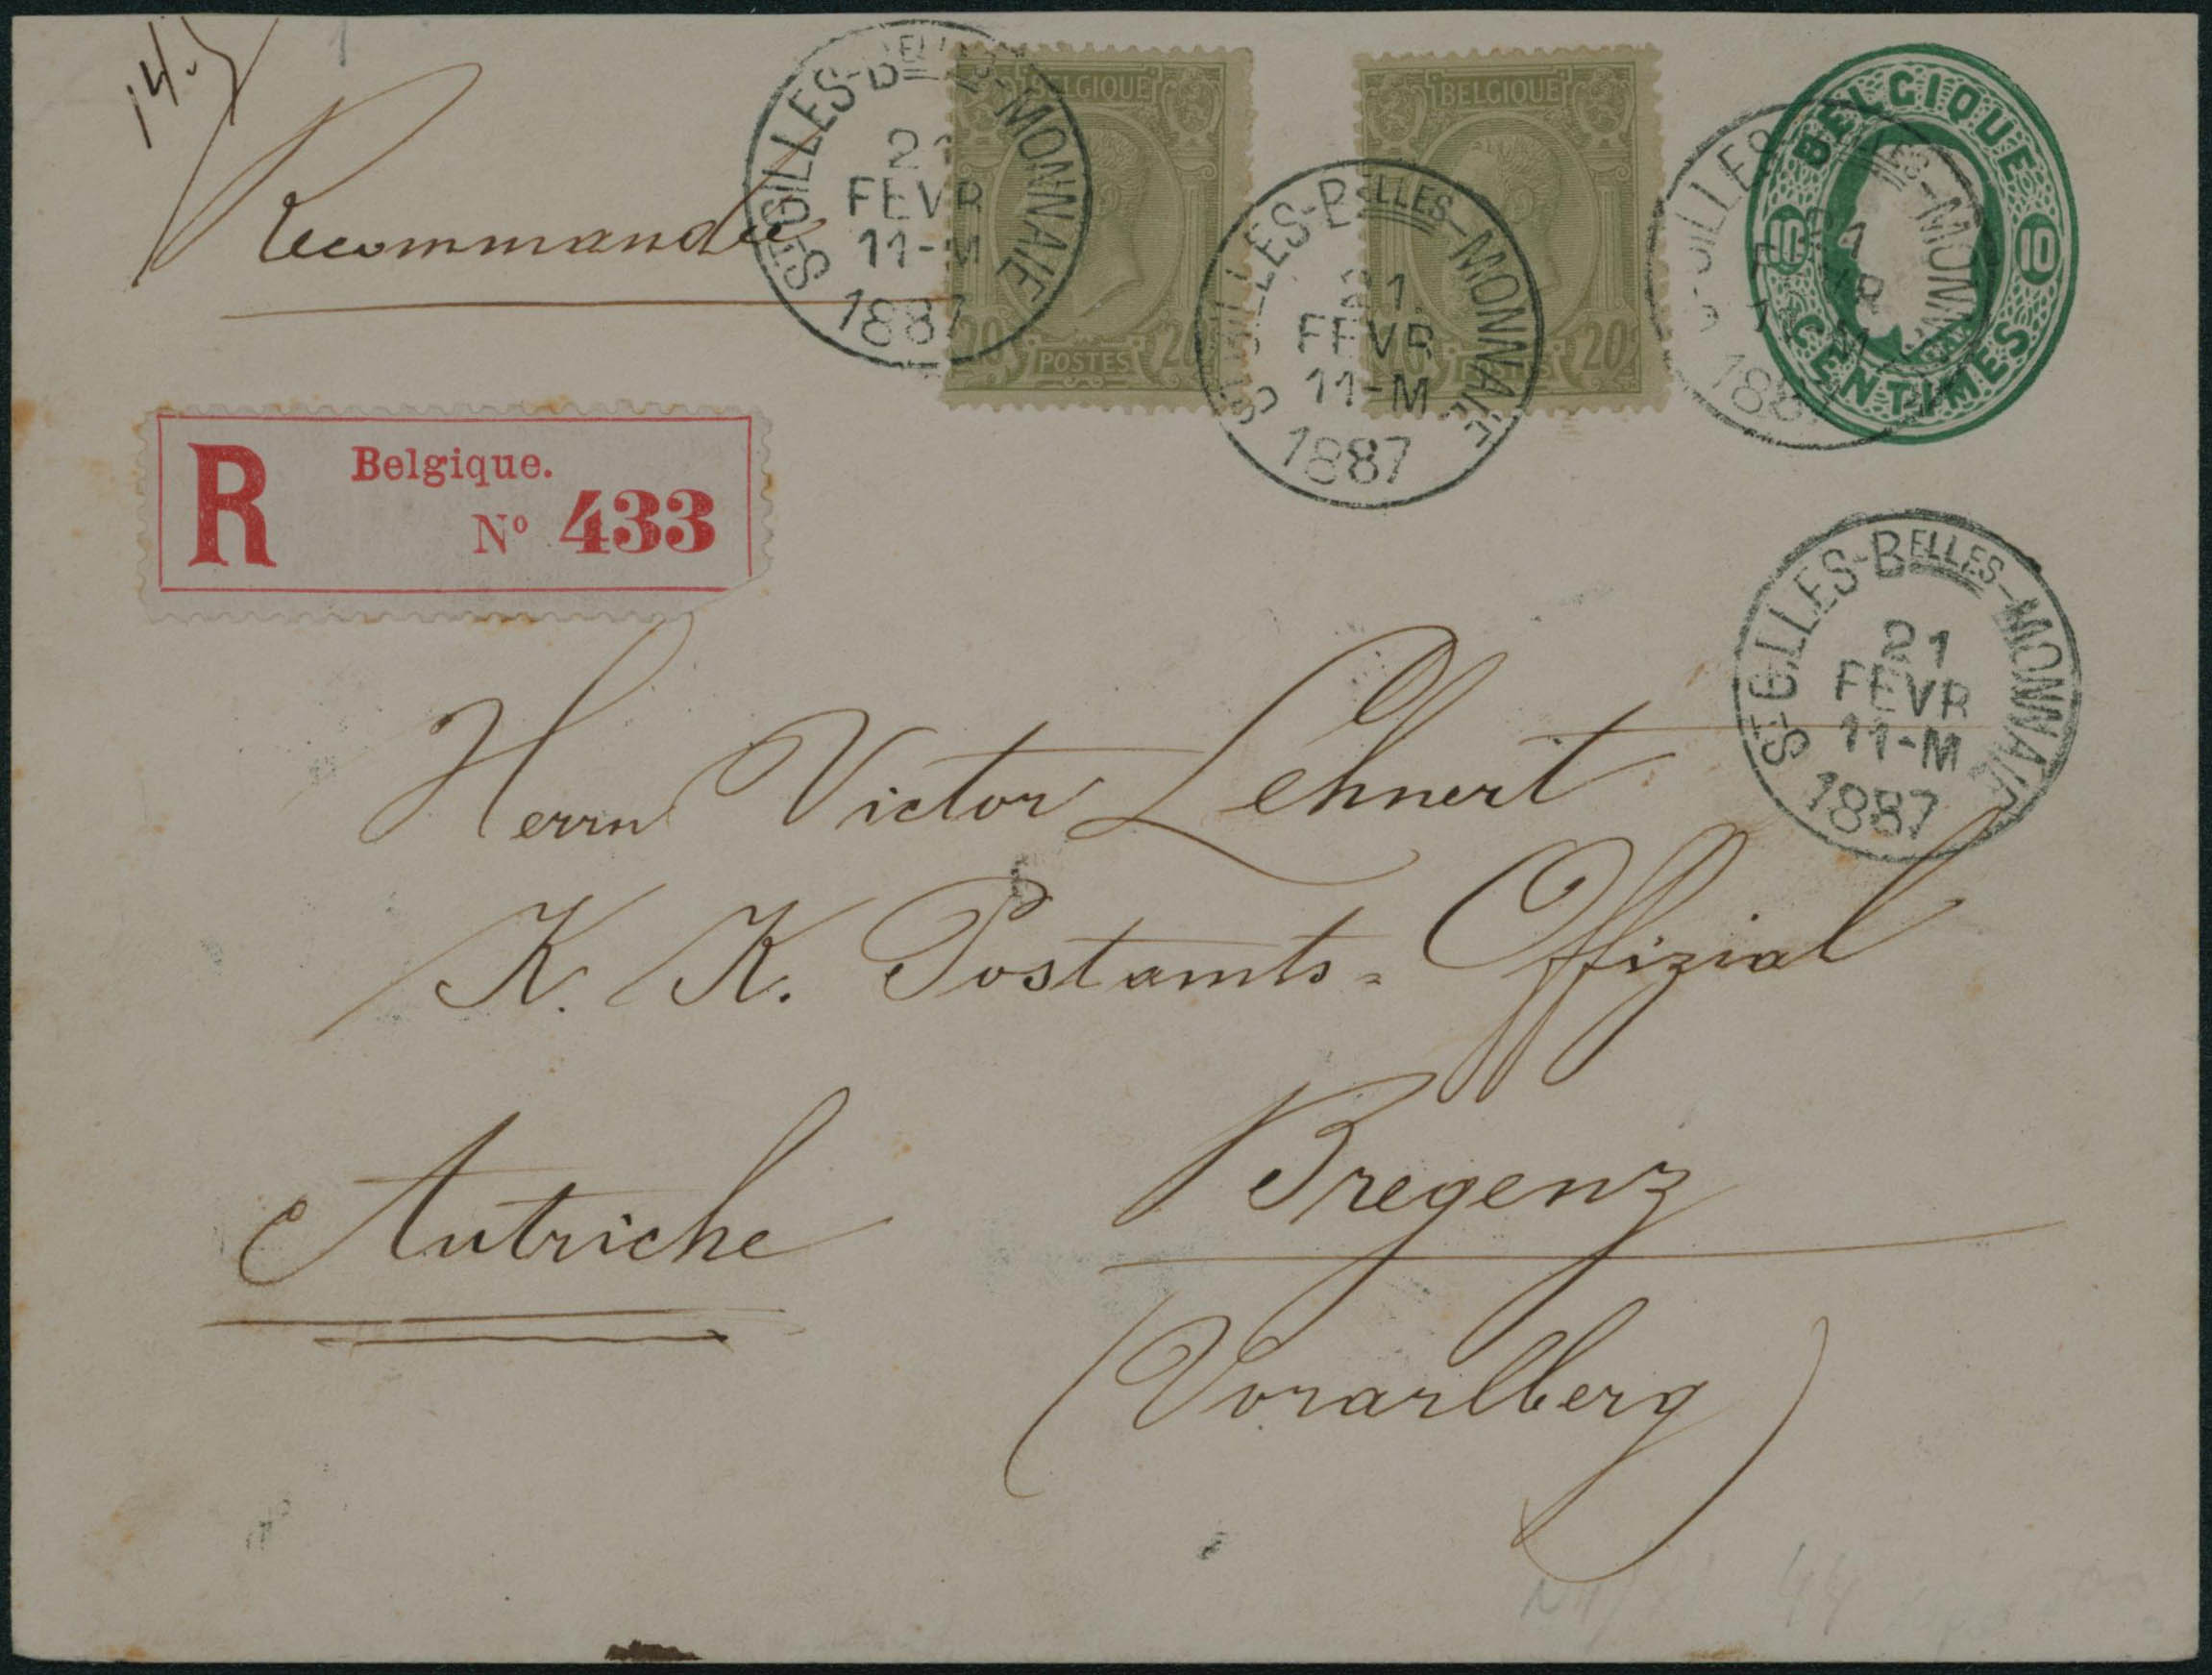 14.
Recommandée
ST-GILLES-BELLES-MONNAIE
21
FEVR
11-M
1887
BELGIQUE
20 POSTES 20
ST-GILLES-BELLES-MONNAIE
21
FEVR
11-M
1887
BELGIQUE
20 POSTES 20
GILLES-BELLES-MONN
21
1887
BELGIQUE
10 10
CENTIMES
R Belgique.
Nº 433
ST-GILLES-BELLES-MONNAIE
21
FEVR
11-M
1887
Herrn Victor Lehnert
K. K. Postamts=Offizial
Bregenz
Autriche
(Vorarlberg)
44